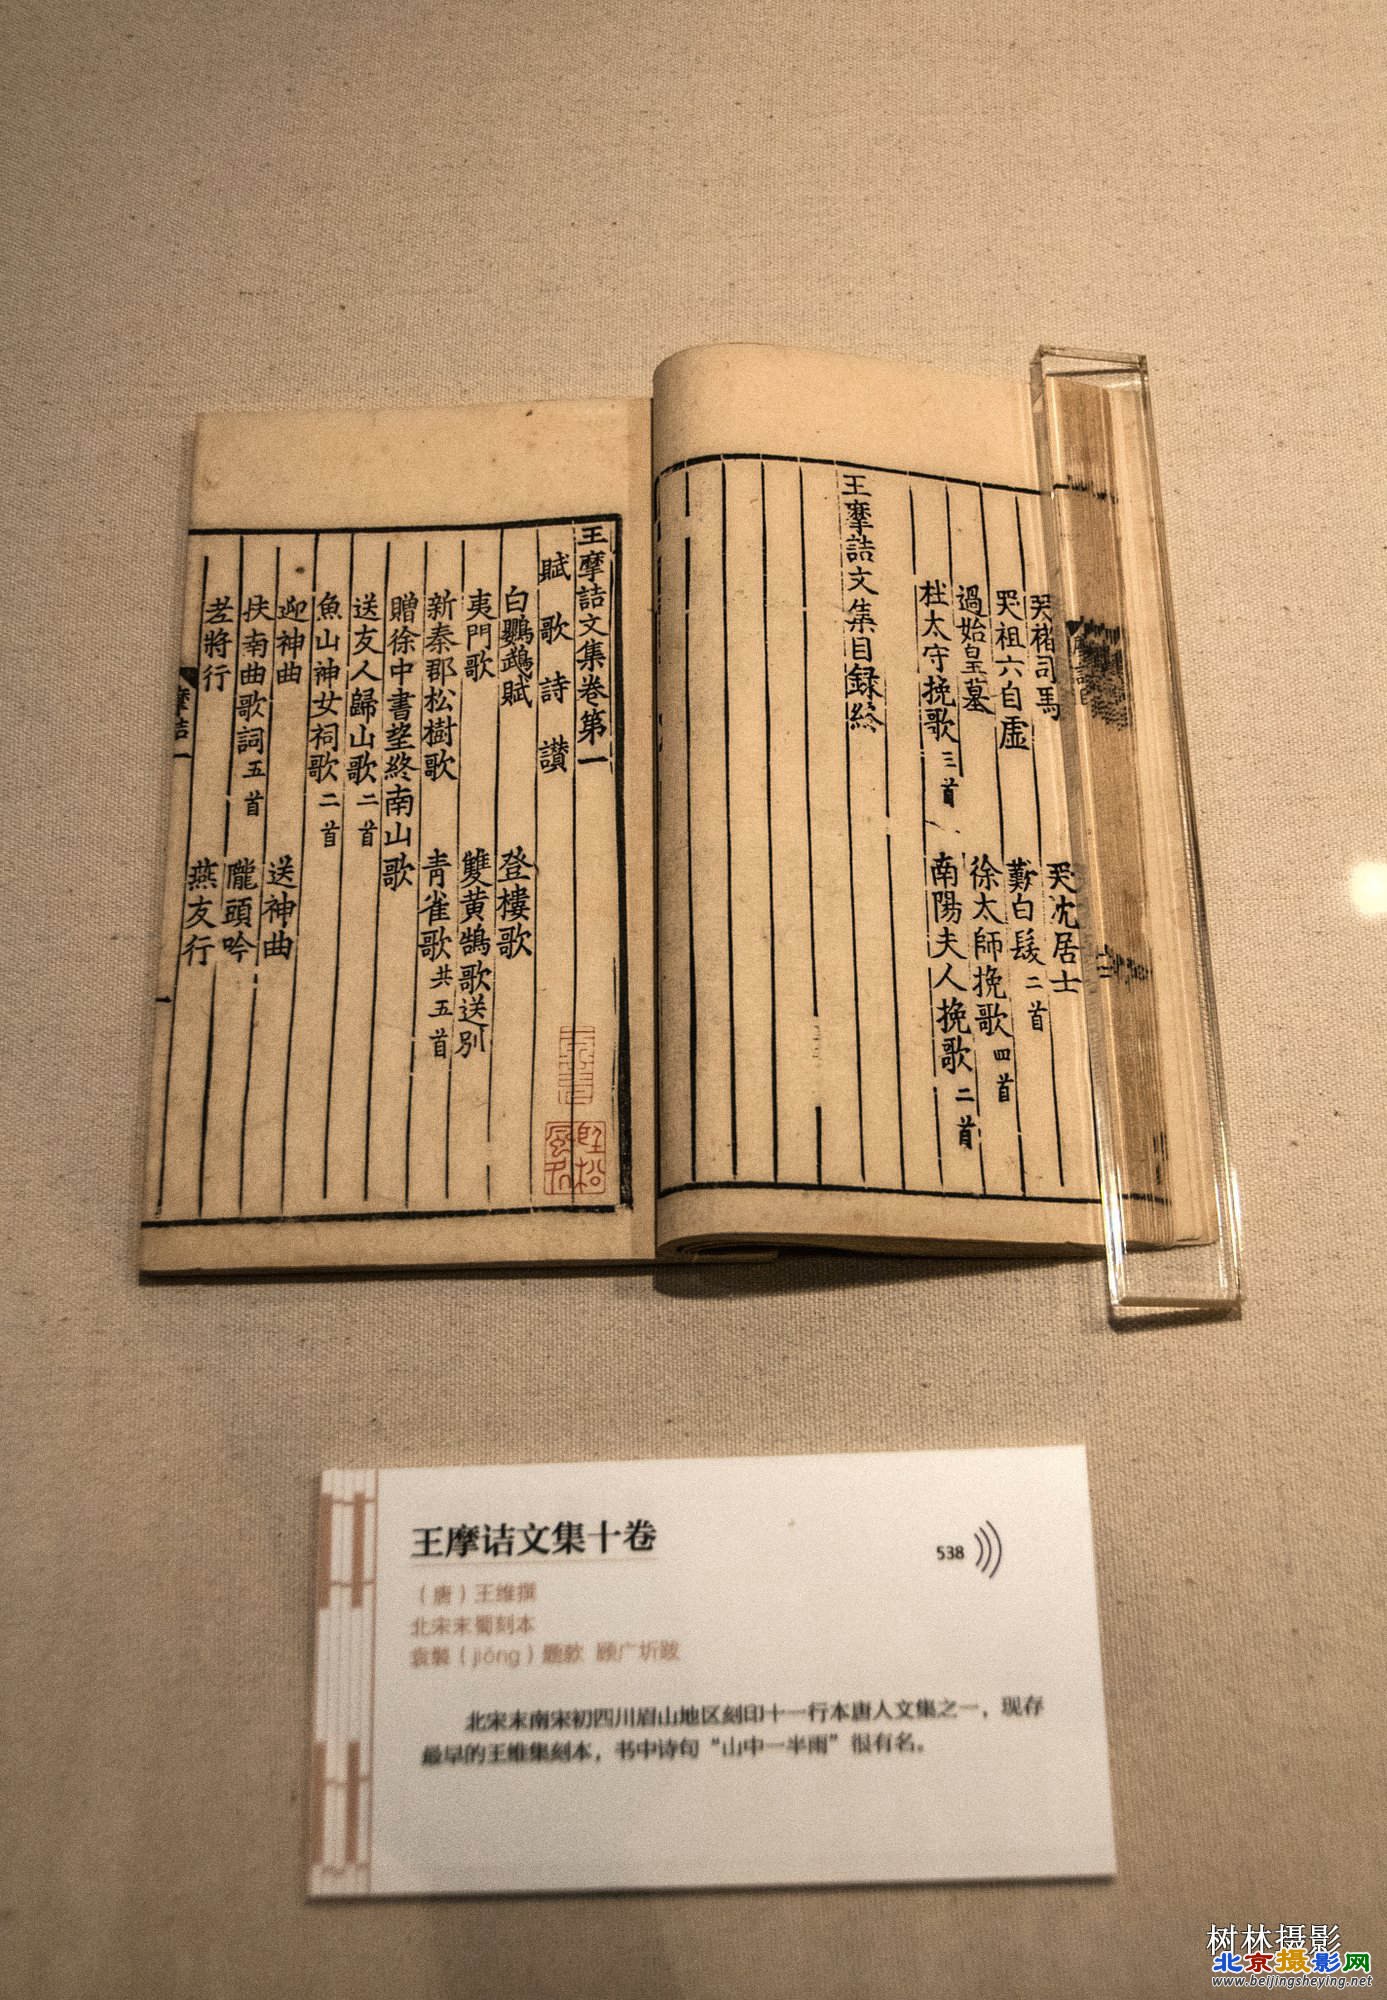 哭褚司馬　哭沈居士
哭祖六自虛　歎白髮二首
過始皇墓　徐太師挽歌四首
杜太守挽歌三首　南陽夫人挽歌二首
王摩詰文集目録終
王摩詰文集卷第一
賦　歌　詩　讃
白鸚鵡賦　登樓歌
夷門歌　雙黄鵠歌送别
新秦郡松樹歌　青雀歌共五首
贈徐中書望終南山歌
送友人歸山歌二首
魚山神女祠歌二首
迎神曲　送神曲
扶南曲歌詞五首　隴頭吟
老將行　燕支行
摩詰一
王摩诘文集十卷
538
（唐）王维撰
北宋末蜀刻本
袁褧（jiǒng）题款 顾广圻跋
北宋末南宋初四川眉山地区刻印十一行本唐人文集之一，现存
最早的王维集刻本，书中诗句“山中一半雨”很有名。
树林摄影
北京摄影网
www.beijingsheying.net